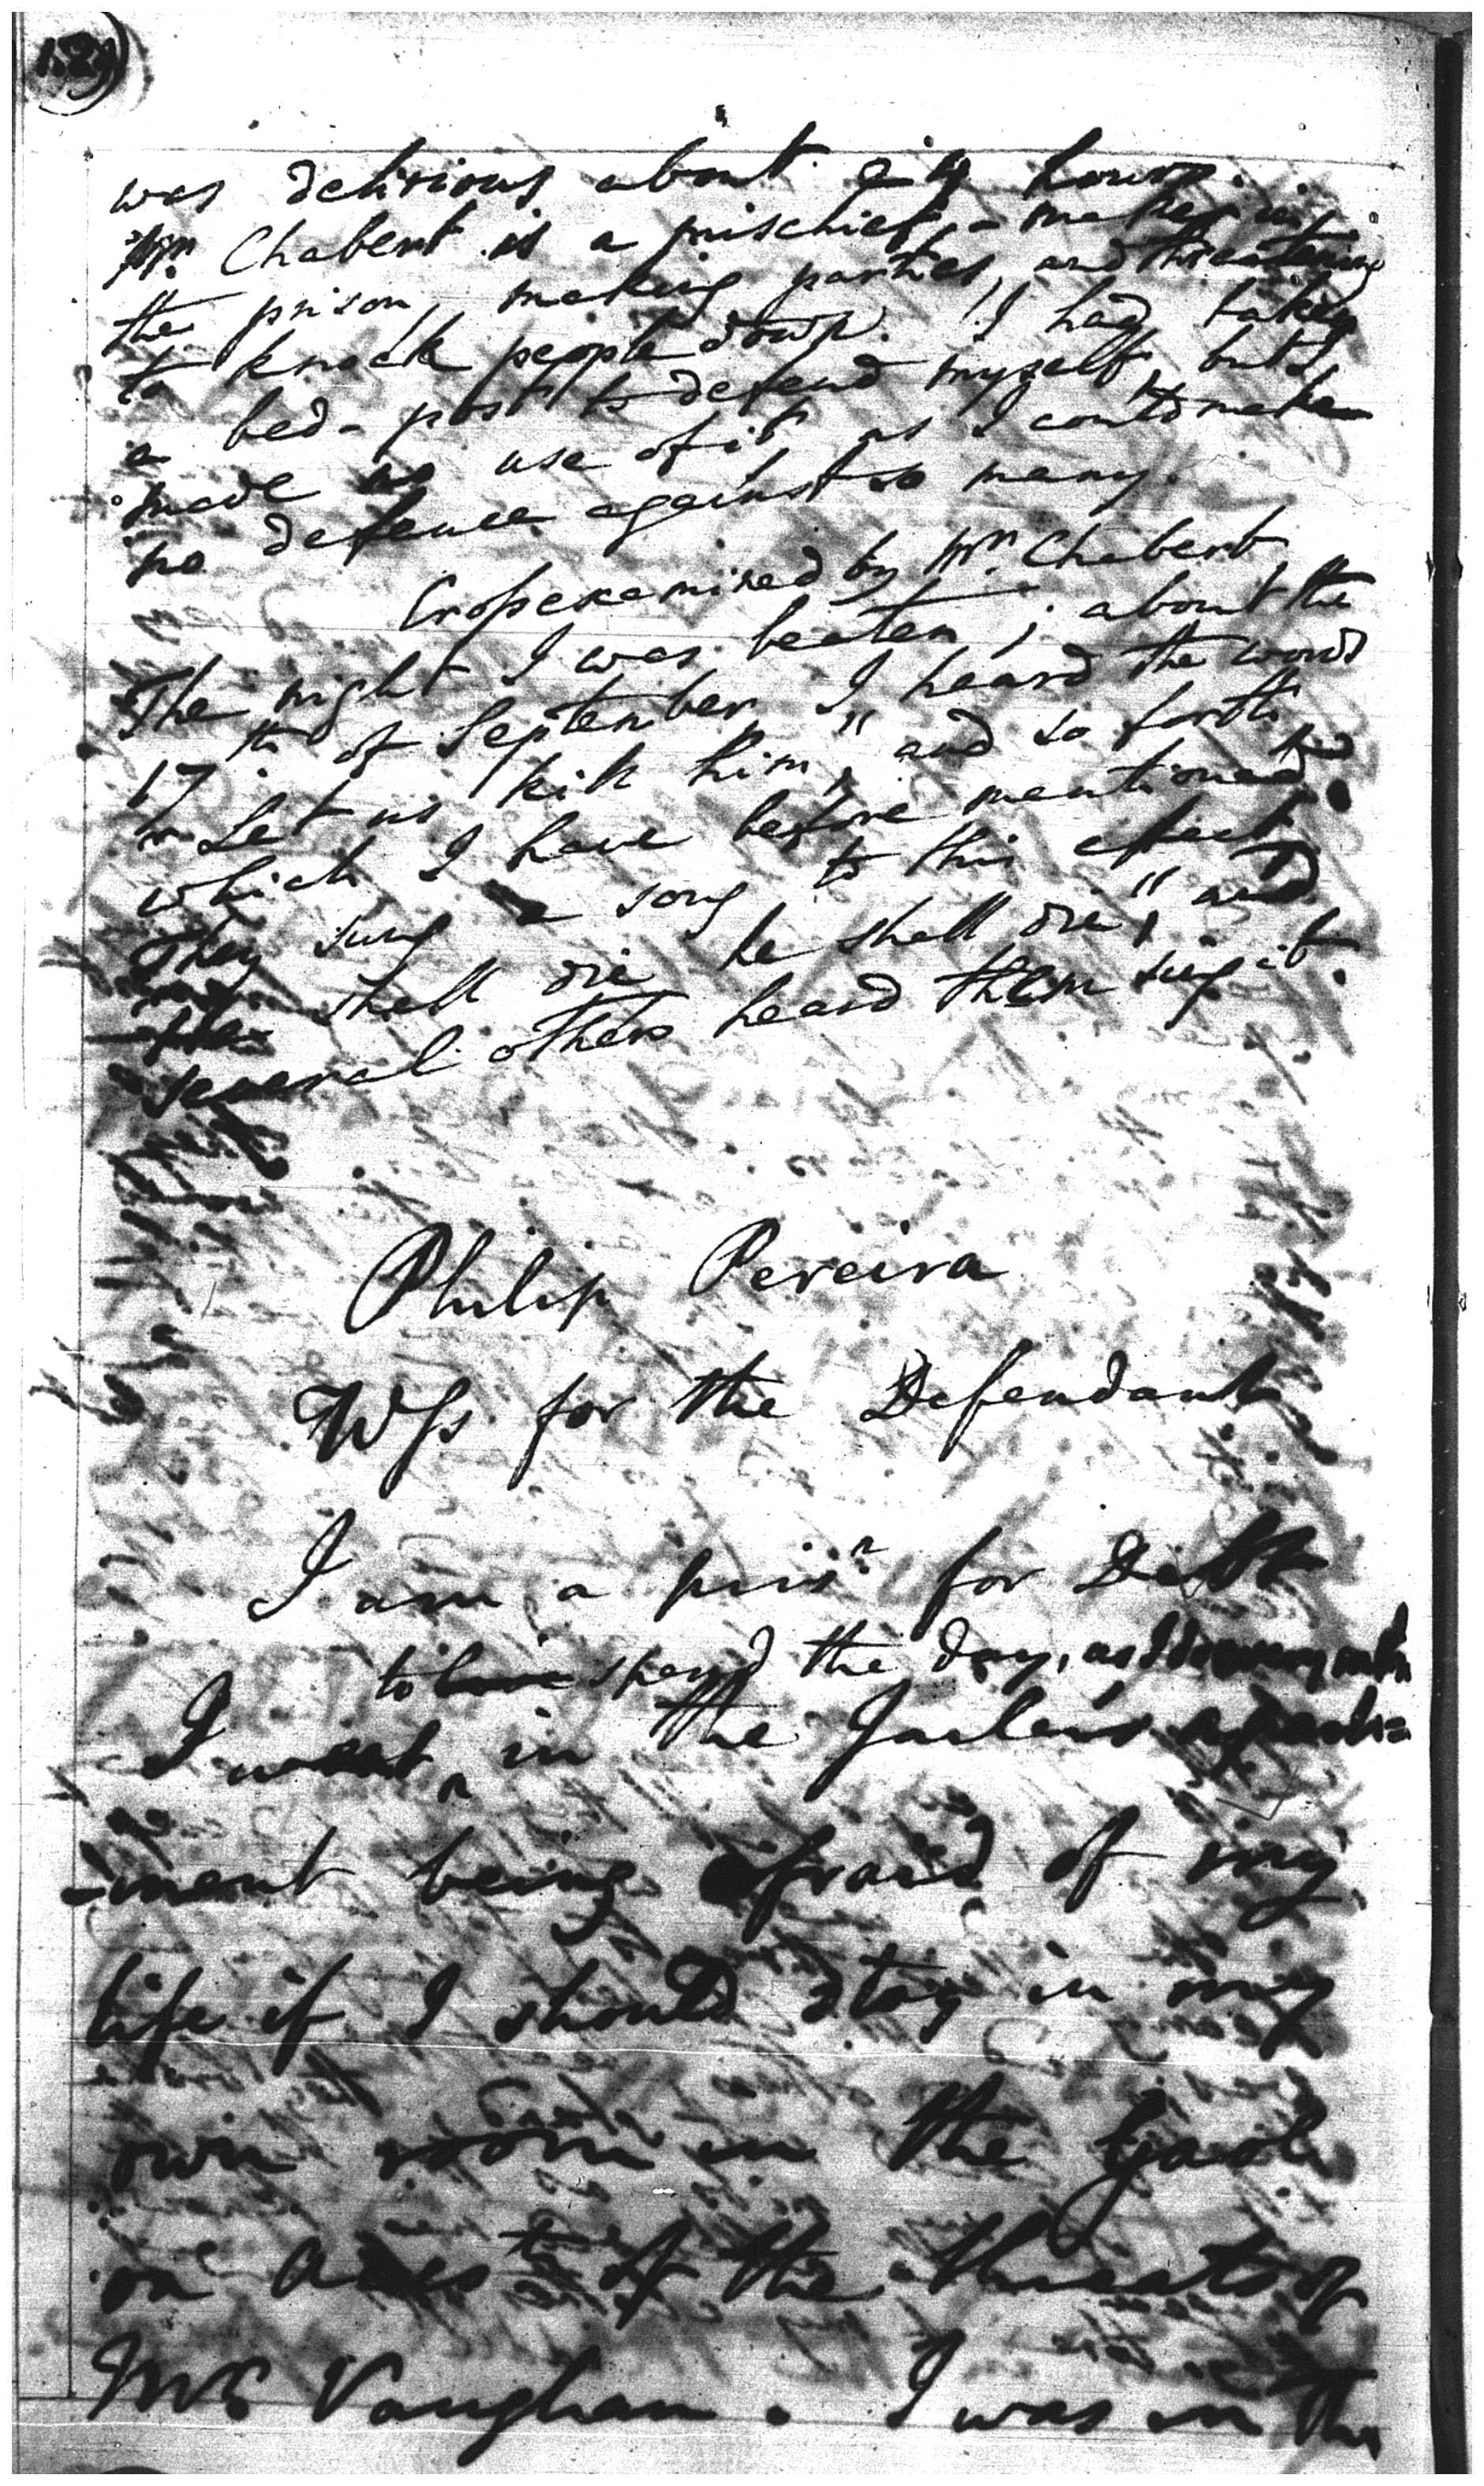 was delirious about six hours.
Mr. Chabert is a mischief-maker in
the prison, making parties, and threatening
to knock people down. I had taken
a bed-post to defend myself, but I
made no use of it, as I could make
no defence against so many.
Crossexamined by Mr. Chabert
The night I was beaten, about the
17th of September I heard the words
"Let us kill him," and so forth,
which I have before mentioned
They sung a song to this effect
shall die he shall die," and
several others heard them sing it.
Philip Pereira
Wss for the Defendant
I am a prisr for Debt
to spend the day, as I do every
I went in the Jailer's apart=
-ment being afraid of my
life if I should stay in my
own room in the Gaol
on of the threats of
Mr. Vaughan. I was in the